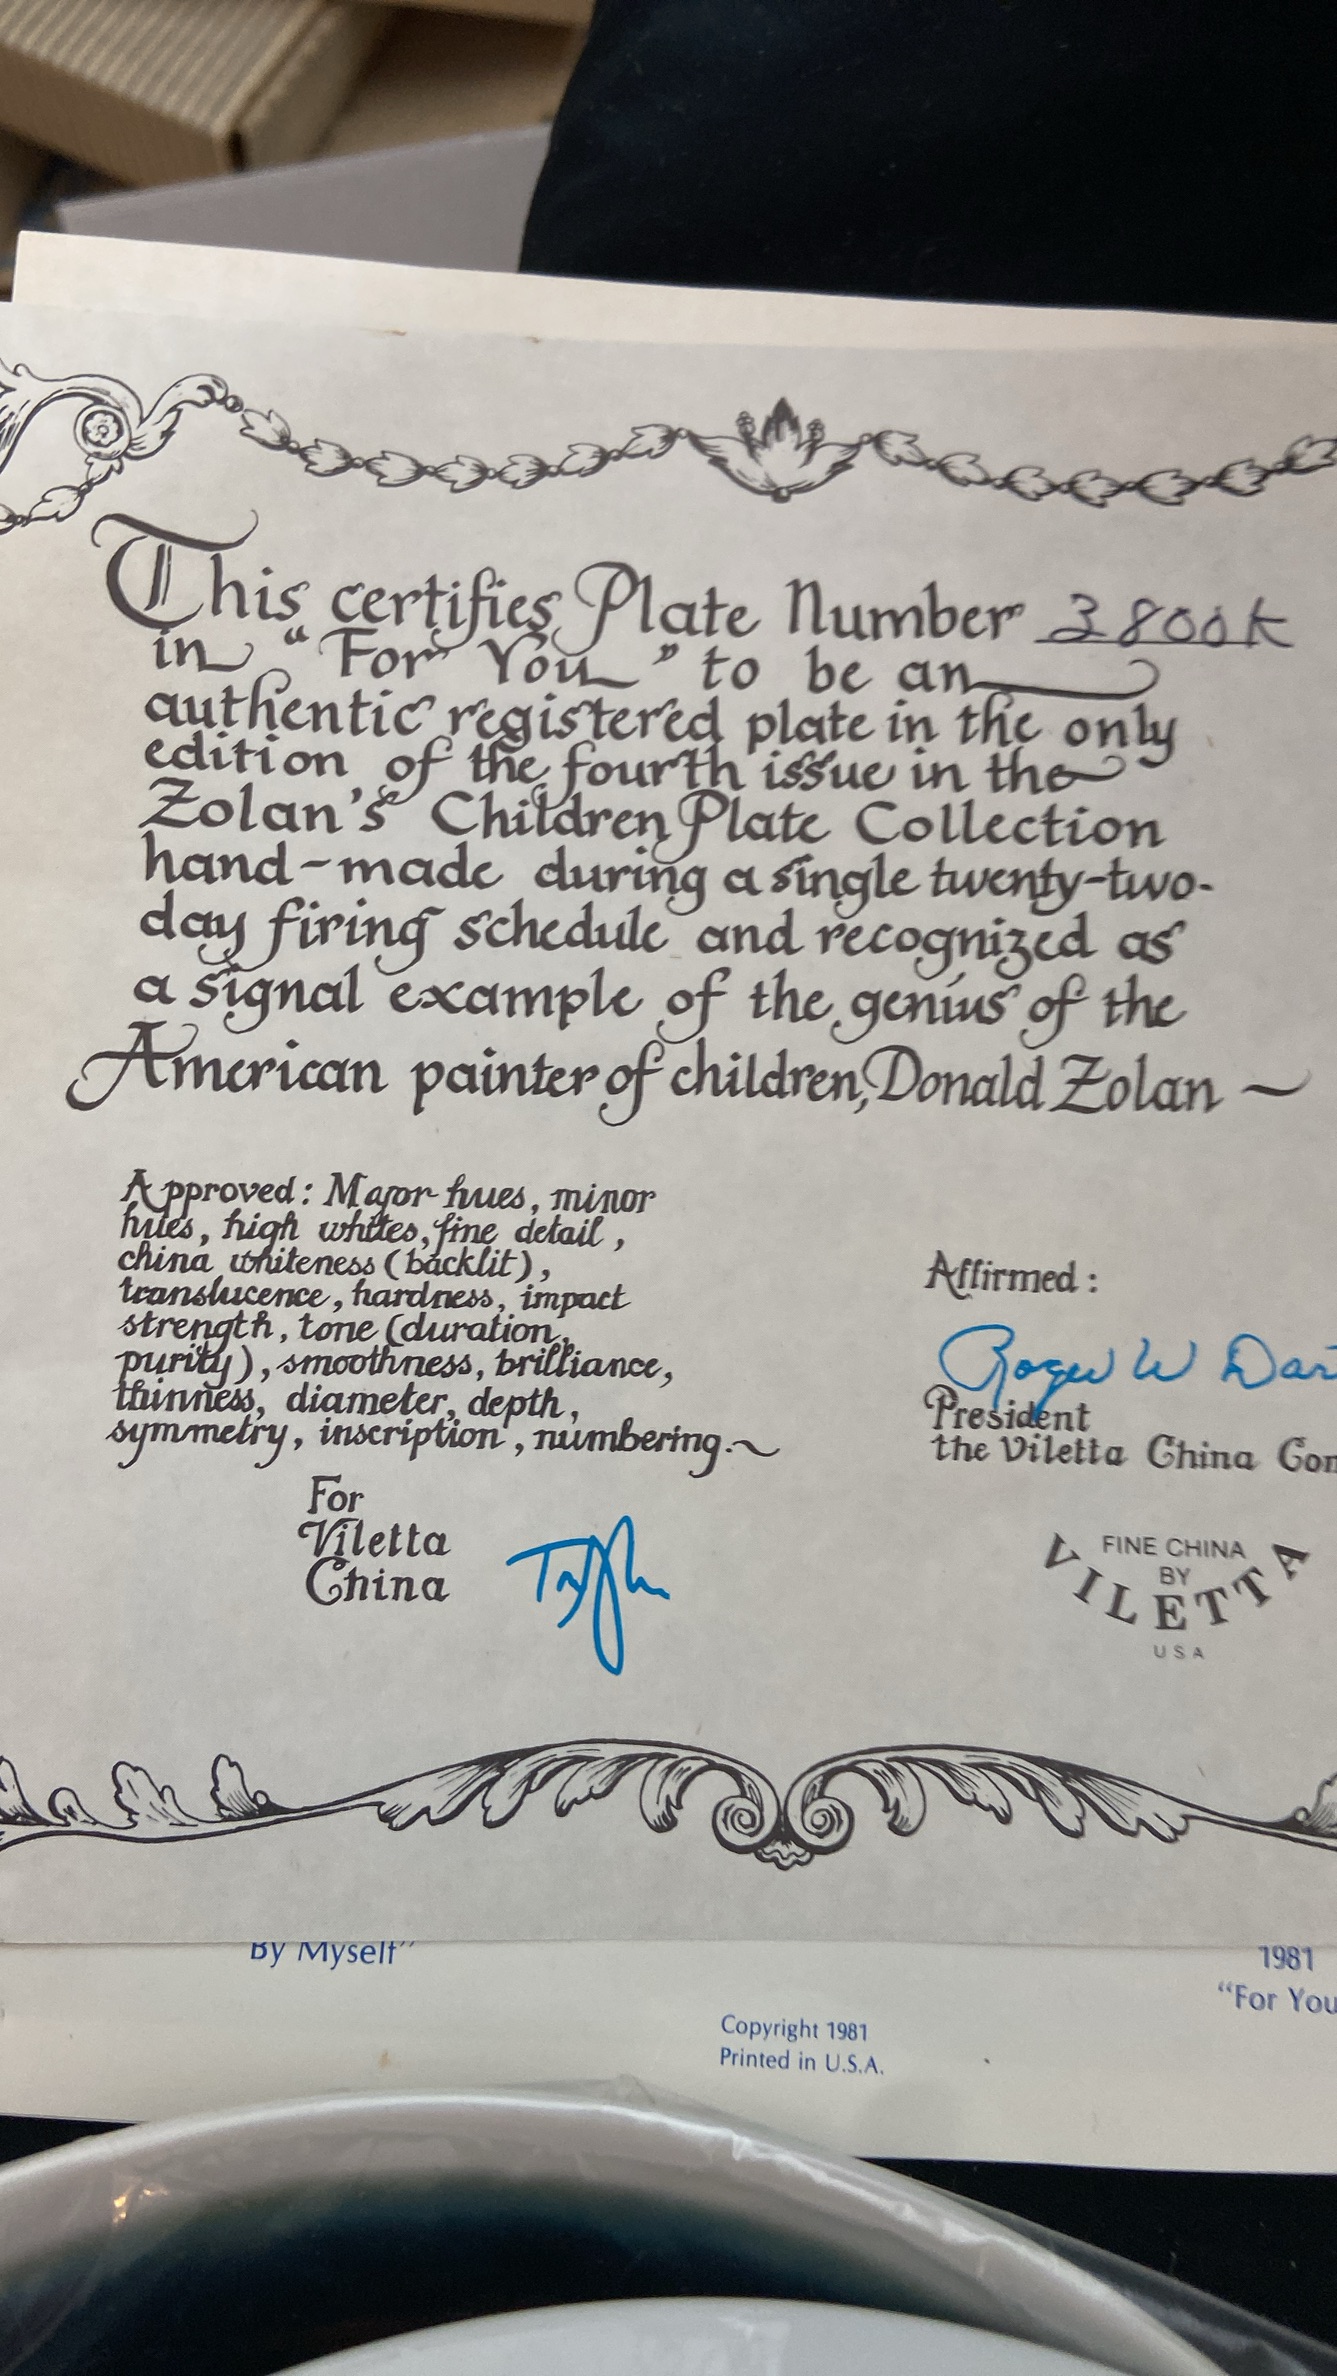 This certifies Plate Number 3800K
in "For You" to be an
authentic registered plate in the only
edition of the fourth issue in the
Zolan's Children Plate Collection
hand-made during a single twenty-two-
day firing schedule and recognized as
a signal example of the genius of the
American painter of children, Donald Zolan ~
Approved: Major hues, minor
hues, high whites, fine detail,
china whiteness (backlit),
translucence, hardness, impact
strength, tone (duration,
purity), smoothness, brilliance,
thinness, diameter, depth,
symmetry, inscription, numbering.~
For
Viletta
China
Affirmed:
Roger W
President
the Viletta China
FINE CHINA
BY
VILETTA
USA
By Myself"
1981
"For You
Copyright 1981
Printed in U.S.A.